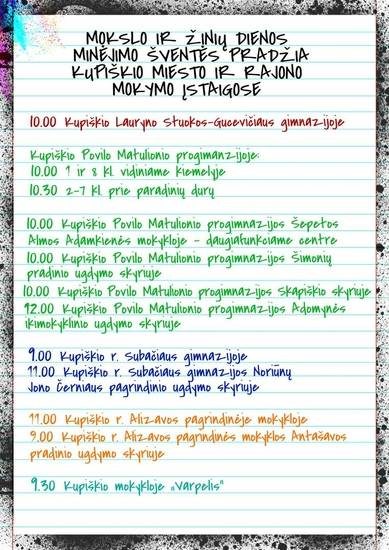 MOKSLO IR ŽINIŲ DIENOS
MINĖJIMO ŠVENTĖS PRADŽIA
KUPIŠKIO MIESTO IR RAJONO
MOKYMO ĮSTAIGOSE
10.00 Kupiškio Lauryno Stuokos-Gucevičiaus gimnazijoje
Kupiškio Povilo Matulionio progimanzijoje:
10.00 1 ir 8 kl. vidiniame kiemelyje
10.30 2-7 kl. prie paradinių durų
10.00 Kupiškio Povilo Matulionio progimnazijos Šepetos
Almos Adamkienės mokykloje - daugiafunkciame centre
10.00 Kupiškio Povilo Matulionio progimnazijos Šimonių
pradinio ugdymo skyriuje
10.00 Kupiškio Povilo Matulionio progimnazijos Skapiškio skyriuje
12.00 Kupiškio Povilo Matulionio progimnazijos Adomynės
ikimokyklinio ugdymo skyriuje
9.00 Kupiškio r. Subačiaus gimnazijoje
11.00 Kupiškio r. Subačiaus gimnazijos Noriūnų
Jono Černiaus pagrindinio ugdymo skyriuje
11.00 Kupiškio r. Alizavos pagrindinėje mokykloje
9.00 Kupiškio r. Alizavos pagrindinės mokyklos Antašavos
pradinio ugdymo skyriuje
9.30 Kupiškio mokykloje „Varpelis"